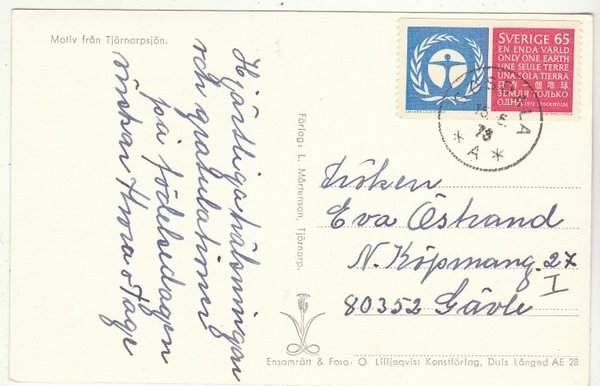 Motiv från Tjörnarpsjön.
Hjärtliga hälsningar
och gratulationer
på födelsedagen
önskar Thora o Tage
Förlag: L. Mårtenson, Tjörnarp.
SVERIGE 65
EN ENDA VÄRLD
ONLY ONE EARTH
UNE SEULE TERRE
UNA SOLA TIERRA
ЗЕМЛЯ ТОЛЬКО
ОДНА
* A *
Fröken
Eva Östrand
N. Köpmang. 27
I
80352 Gävle
Ensamrätt & Foto: O. Lilljeqvist Konstförlag, Dals Långed AE 28